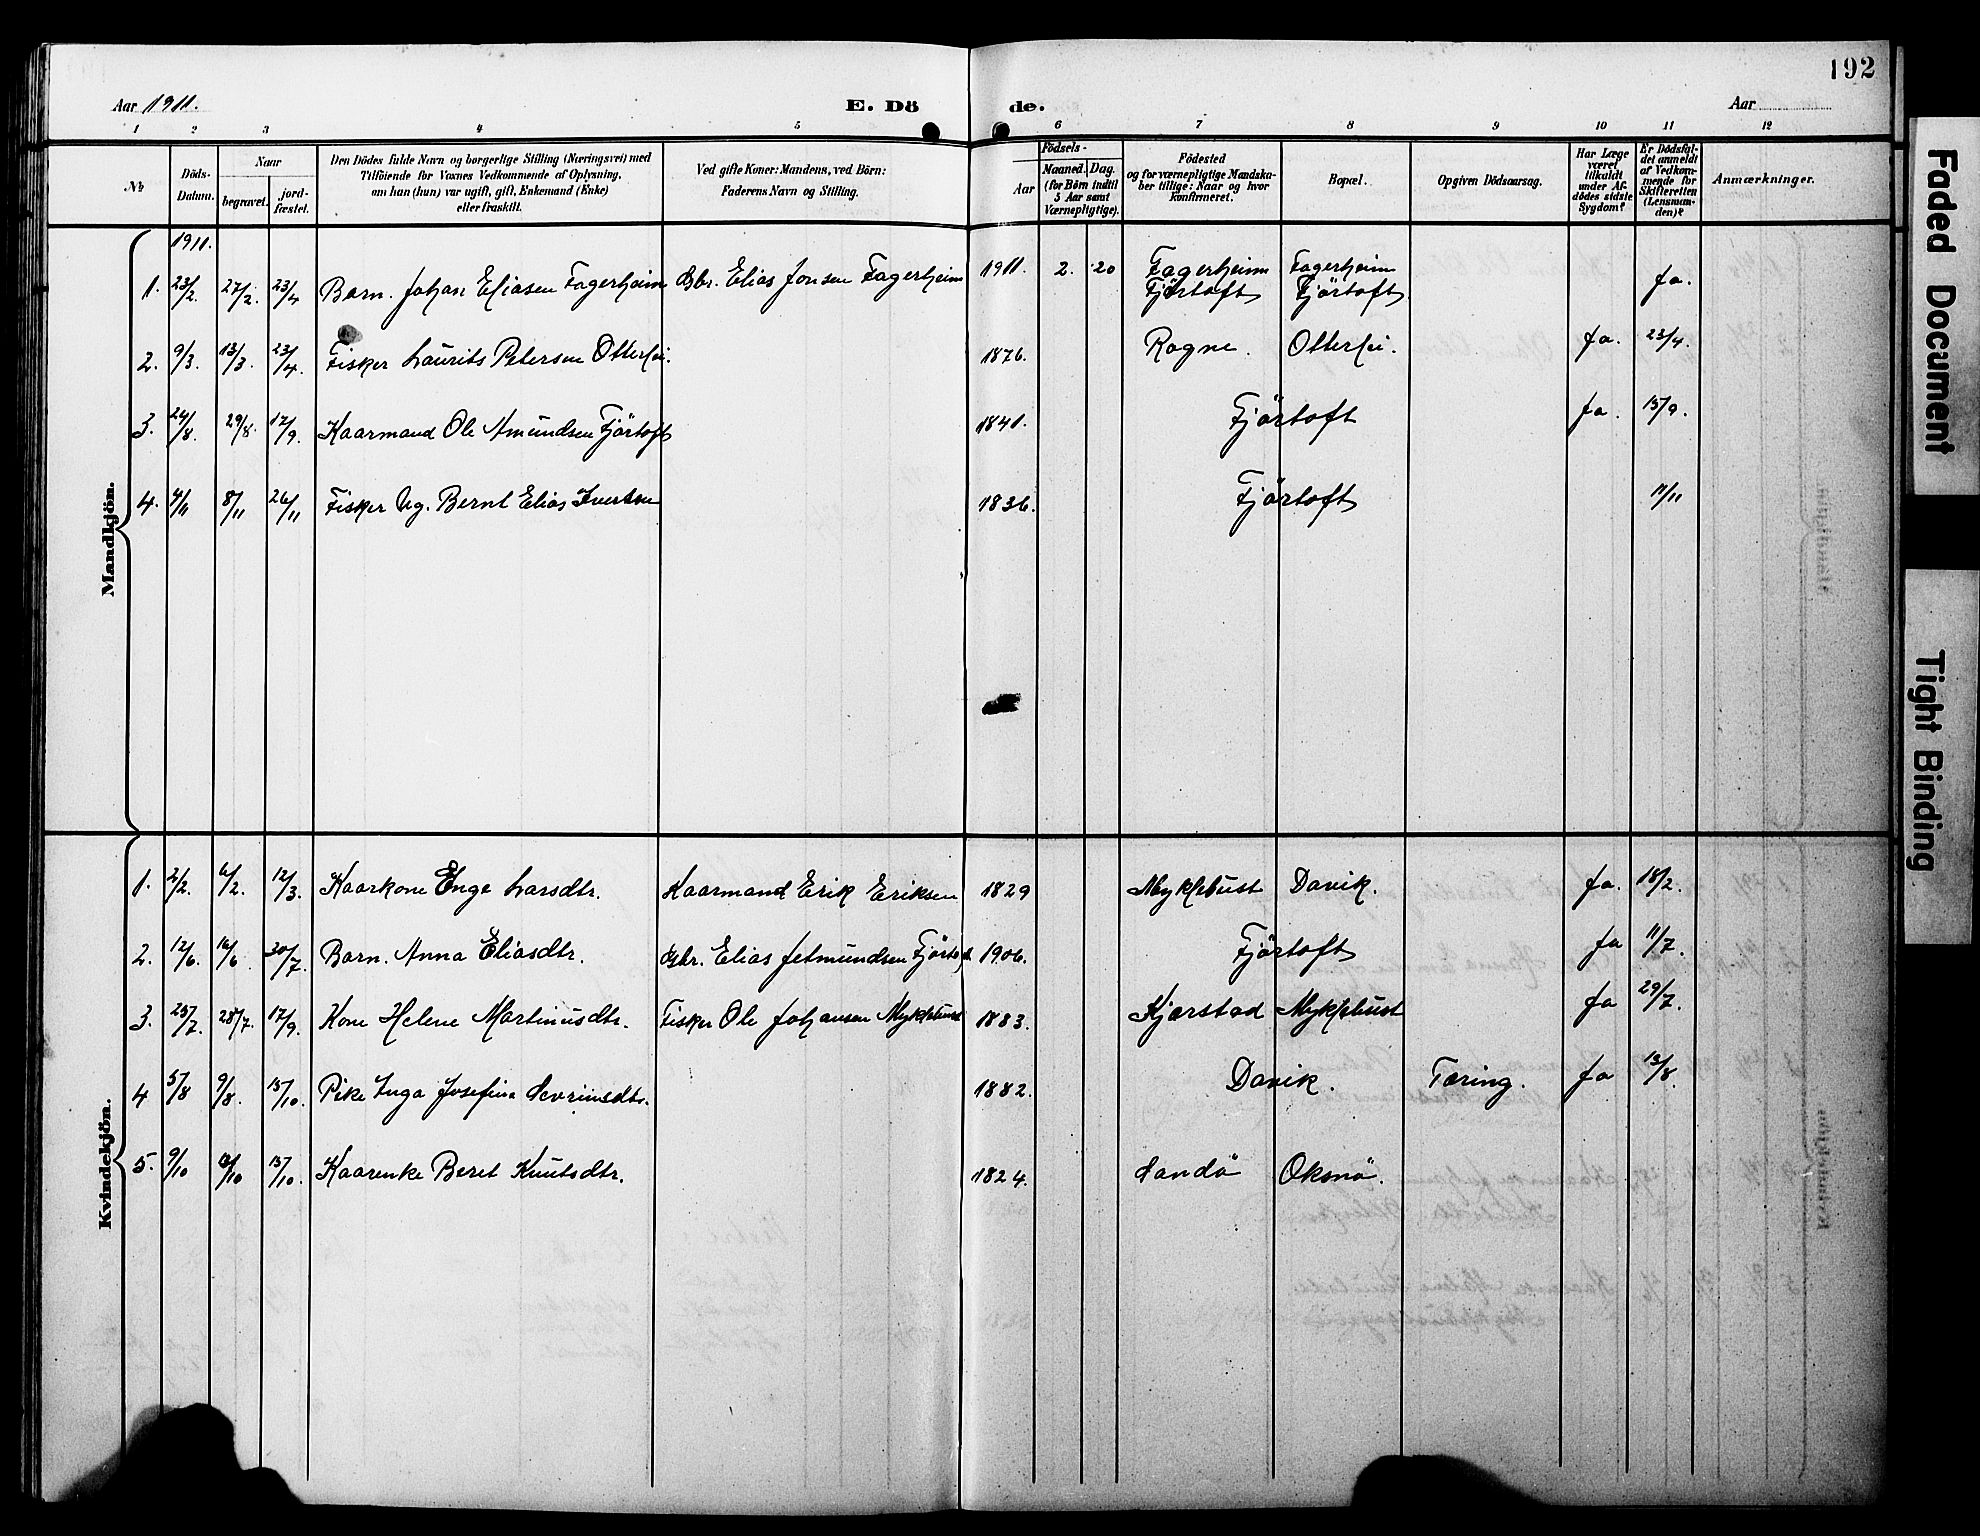 192
Aar 1911.
E. Döde.
Aar
1 2 3 4 5 6 7 8 9 10 11 12
№
Döds-Datum.
Naar
begravet.
jord-fæstet.
Den Dödes fulde Navn og borgerlige Stilling (Næringsvei) med
Tilföiende for Voxnes Vedkommende af Oplysning,
om han (hun) var ugift, gift, Enkemand (Enke)
eller fraskilt.
Ved gifte Koner: Mandens, ved Börn:
Faderens Navn og Stilling.
Födsels-
Aar
Maaned. Dag.
(for Börn indtil
5 Aar samt
Værnepligtige).
Födested
og for værnepligtige Mandska-
ber tillige: Naar og hvor
konfirmeret.
Bopæl.
Opgiven Dödsaarsag.
Har Læge
været
tilkaldt
under Af-
dödes sidste
Sygdom?
Er Dödsfal-
det anmeldt
af Vedkom-
mende for
Skifteretten
(Lensman-
den)?
Anmærkninger.
Mandkjön.
1911.
1. 23/2. 27/2. 23/4 Barn. Johan Eliasen Fagerheim Gbr. Elias Jonsen Fagerheim 1911. 2. 20 Fagerheim Fjörtoft Fagerheim Fjörtoft ja.
2. 9/3. 13/3. 23/4 Fisker Laurits Petersen Otterlei. 1876. Rogne. Otterlei. ja. 23/4.
3. 24/8. 29/8. 17/9. Kaarmand Ole Amundsen Fjörtoft 1841. Fjörtoft ja. 15/9.
4. 4/11 8/11 26/11 Fisker Ug. Bernt Elias Ivertsen 1836. Fjörtoft 11/11
Kvindekjön.
1. 2/2. 6/2. 12/3. Kaarkone Enge Larsdtr. Kaarmand Erik Eriksen 1829 Myklebust Davik. ja. 18/2.
2. 12/6. 16/6 30/7. Barn. Anna Eliasdtr. Gbr. Elias Jetmundsen Fjörtoft 1906. Fjörtoft ja 11/7.
3. 25/7. 28/7. 17/9. Kone Helene Martinusdtr. Fisker Ole Johansen Myklebust 1883. Kjerstad Myklebust ja 29/7.
4 5/8 9/8. 15/10. Pike Inga Josefine Severinsdtr. 1882. Davik. Tæring. ja 13/8.
5. 9/10 /10 15/10. Kaarenke Beret Knutsdtr. 1824. Sandö Oksnö.
Faded Document
Tight Binding